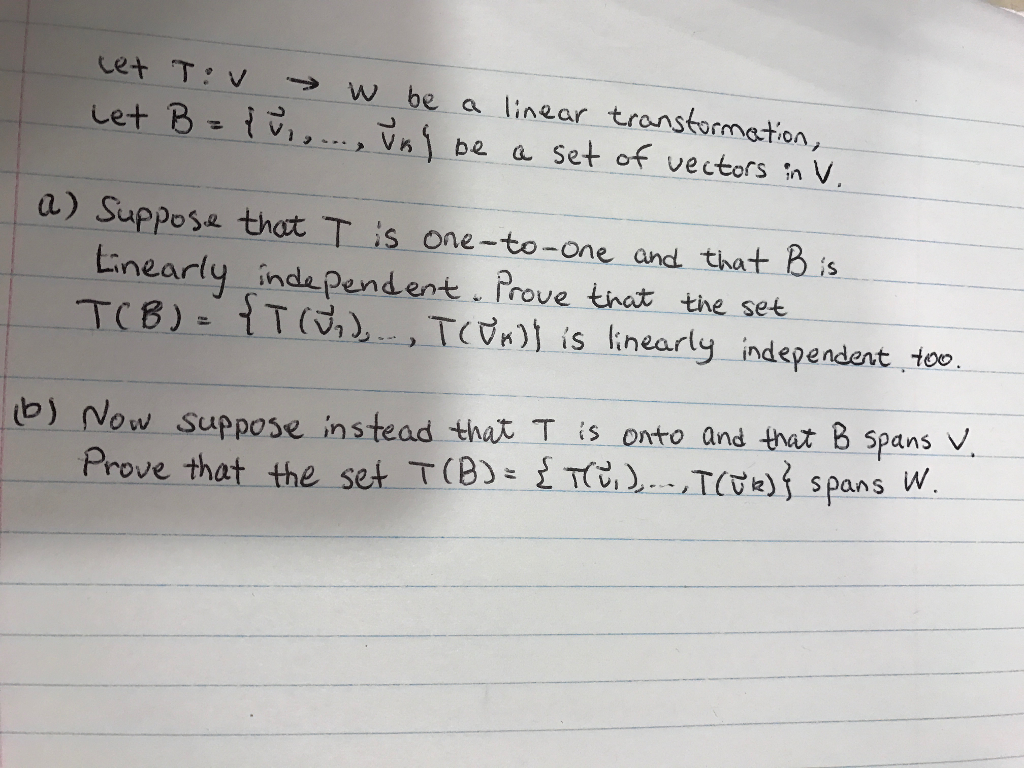 Let T: V → W be a linear transformation,
Let B = {v⃗₁, ..., v⃗ₖ} be a set of vectors in V.
a) Suppose that T is one-to-one and that B is
Linearly independent. Prove that the set
T(B) = {T(v⃗₁), ..., T(v⃗ₖ)} is linearly independent too.
(b) Now suppose instead that T is onto and that B spans V.
Prove that the set T(B) = {T(v⃗₁), ..., T(v⃗ₖ)} spans W.